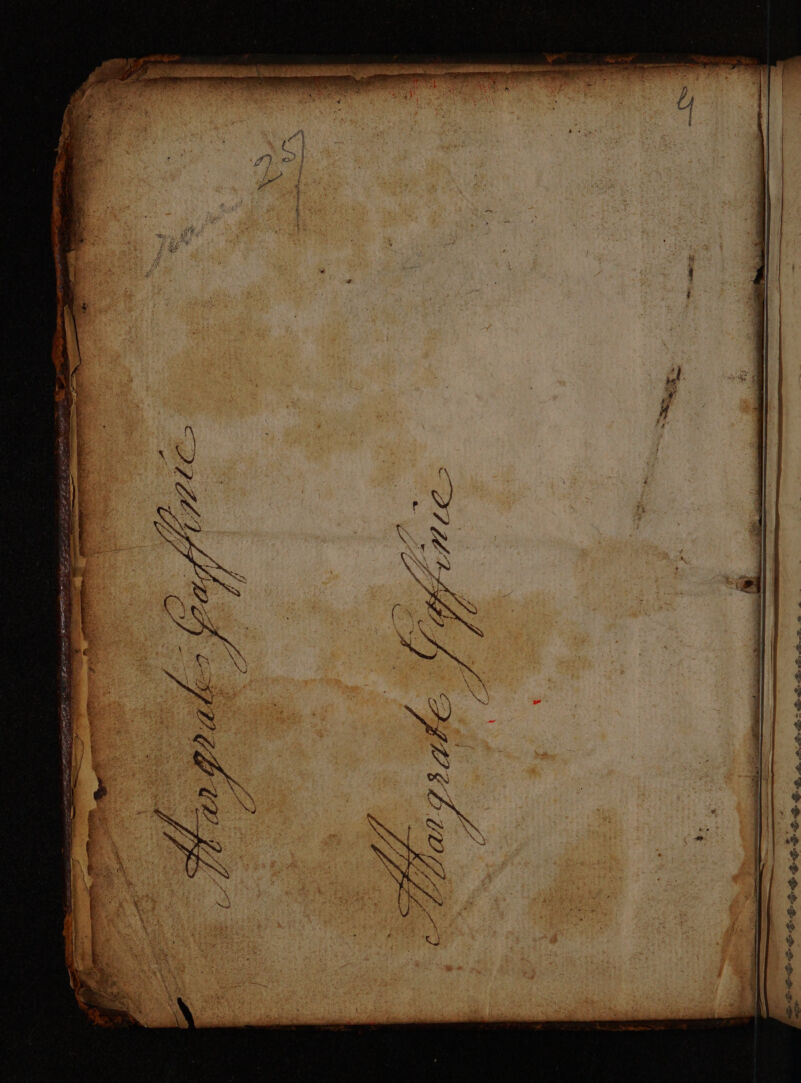 rare 25
4
Margrate Gaffinie
Margrate Gaffinie